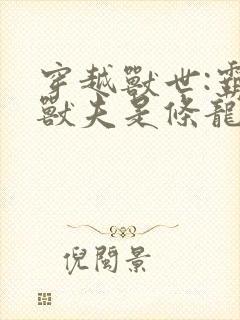 穿越獸世:霸
獸夫是條龍
倪閩景